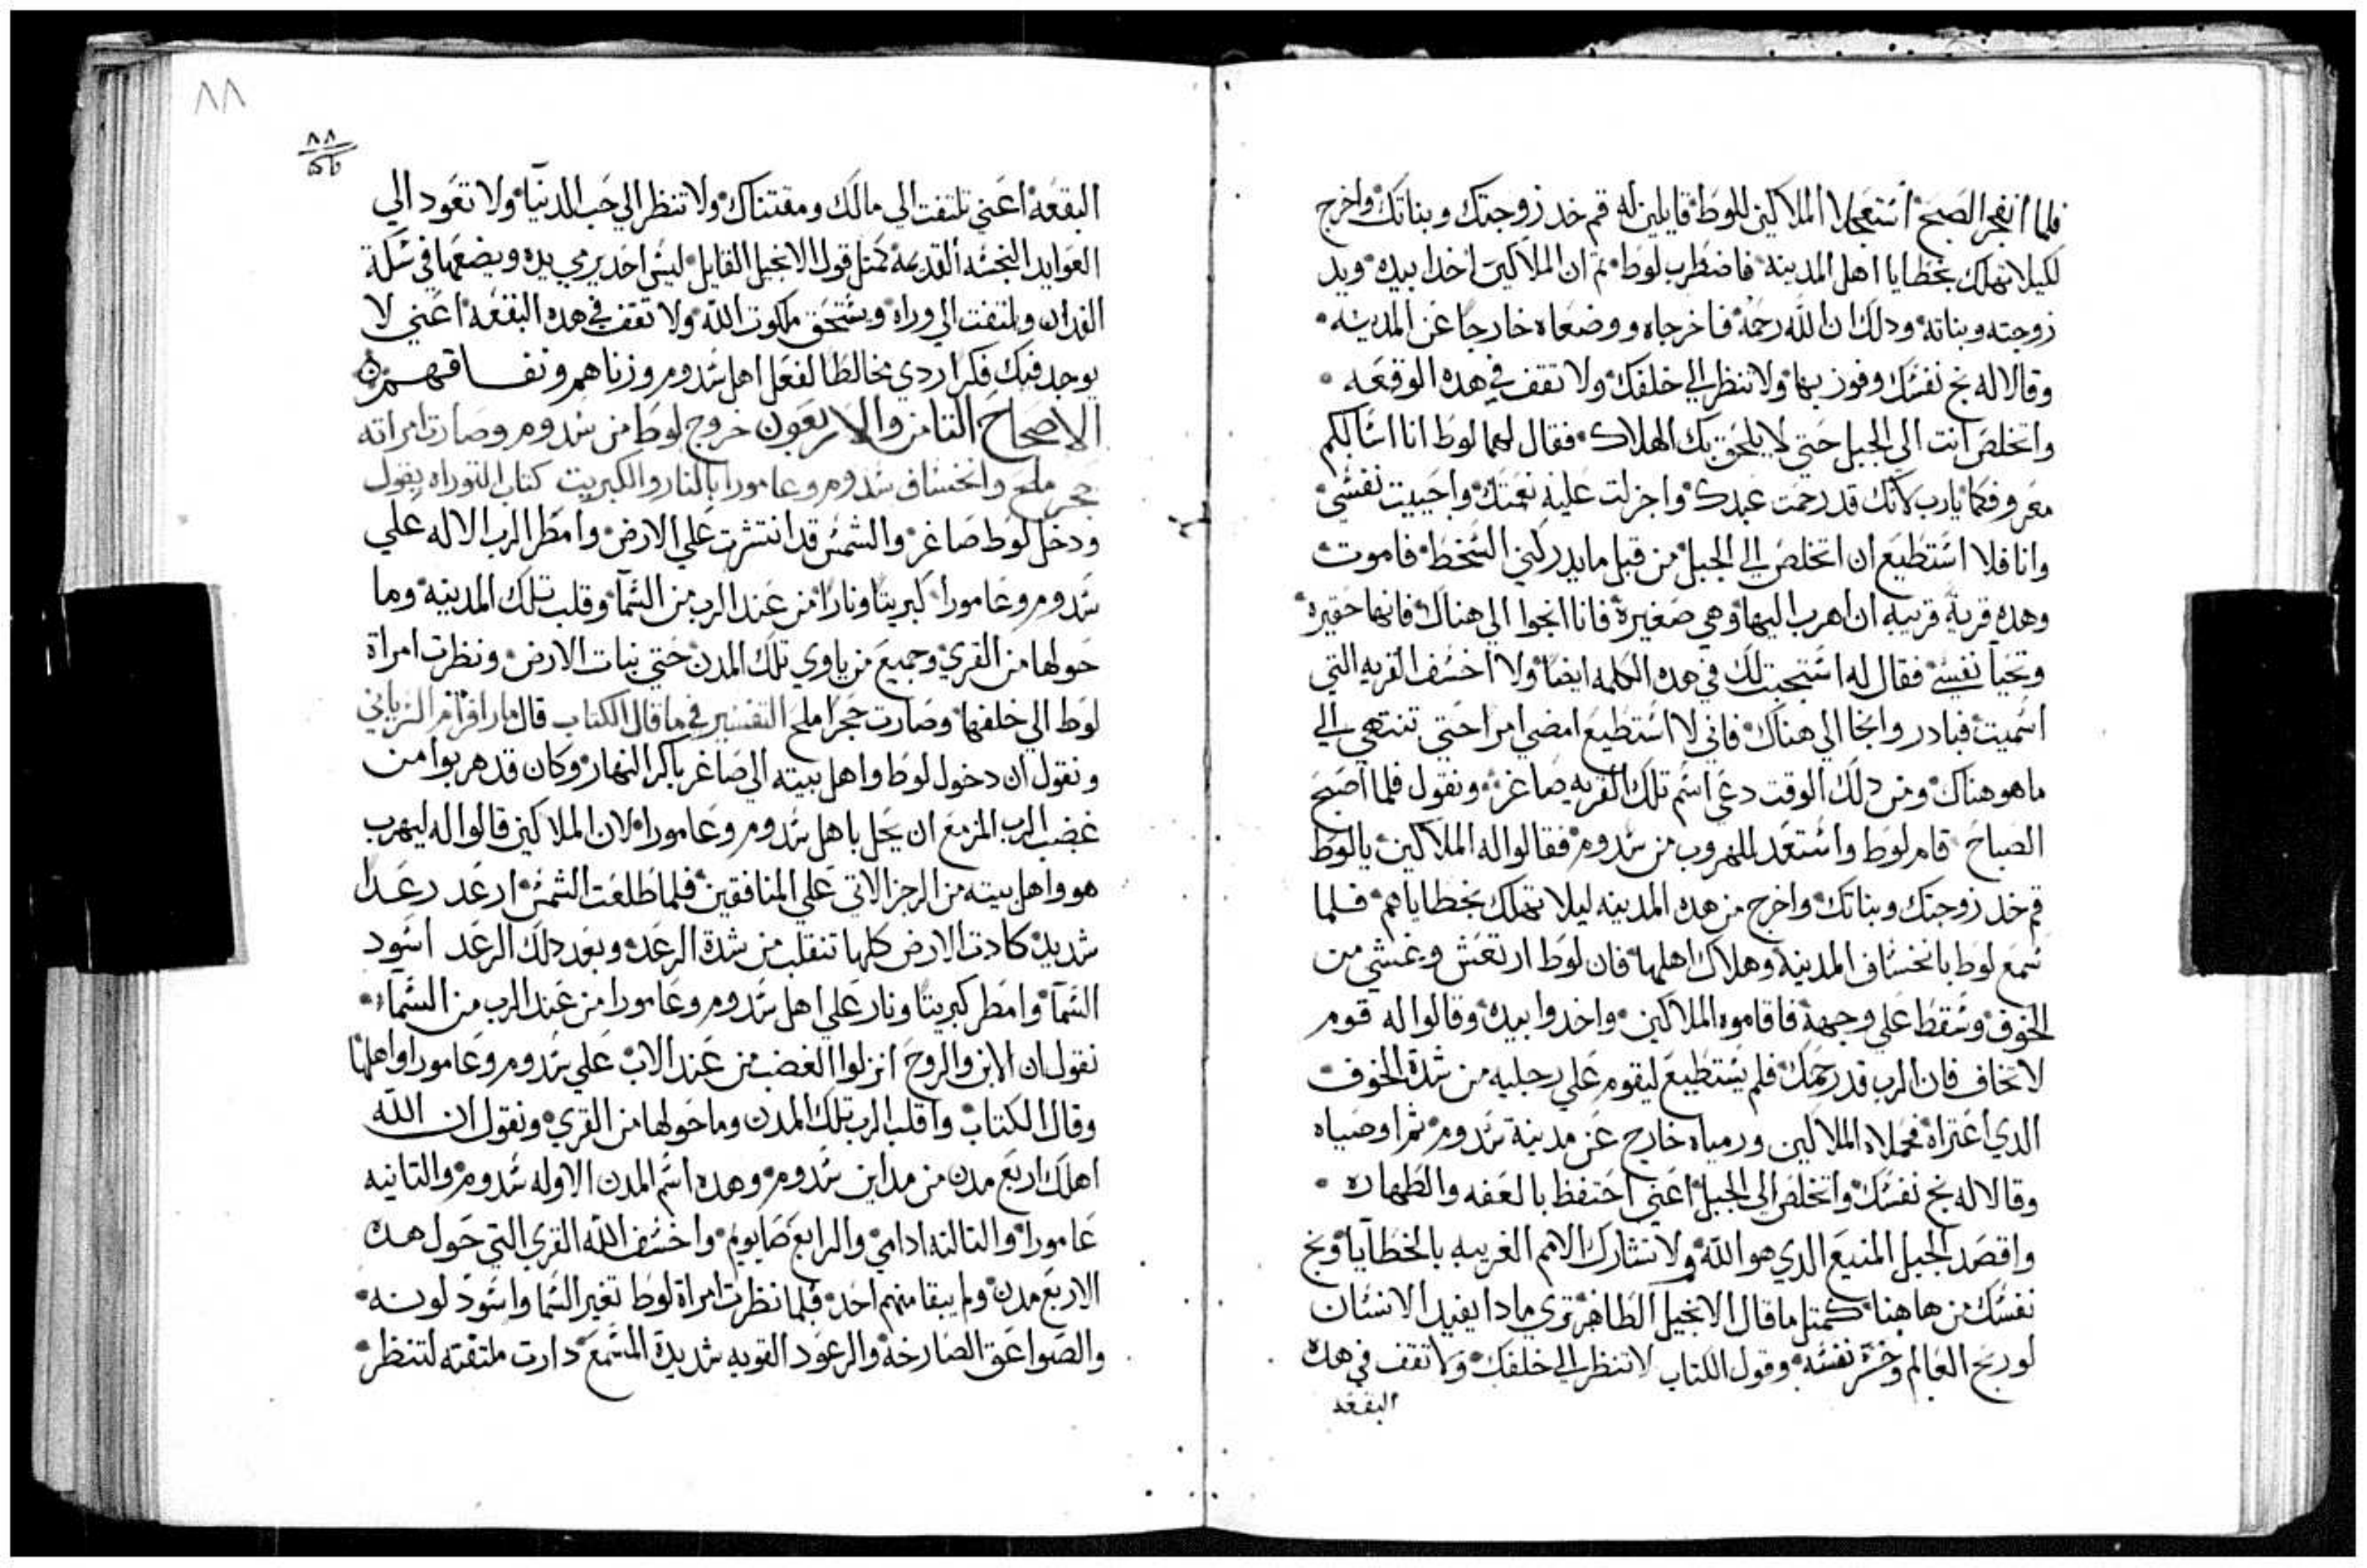 فلما انفجر الصبح استعجلا الملاكين للوط قايلين له قم خد زوجتك وبناتك واخرج
لكيلا تهلك بخطايا اهل المدينه فاضطرب لوط ثم ان الملاكين اخدا بيده ويد
زوجته وبناته ودلك ان الله رحمه فاخرجاه ووضعاه خارجا عن المدينه
وقالا له نج نفسك وفوز بها ولا تنظر الي خلفك ولا تقف في هده الوقعه
واتخلص انت الي الجبل حتي لا يلحق بك الهلاك فقال لهما لوط انا اسالكم
معروفكما يارب لانك قد رحمت عبدك واجزلت عليه نعمتك واحييت نفسي
وانا فلا استطيع ان اتخلص الي الجبل من قبل ما يدركني السخط فاموت
وهده قرية قريبه ان اهرب اليها وهي صغيرة فانا انجوا الي هناك فانها حقيره
وتحيا نفسي فقال له استجبت لك في هده الكلمه ايضا ولا اخسف القريه التي
اسميت فبادر وانجا الي هناك فاني لا استطيع امضي امرا حتي تنتهي الي
ما هو هناك ومن دلك الوقت دعي اسم تلك القريه صاغر ونقول فلما اصبح
الصباح قام لوط واستعد للهروب من سدوم فقالوا له الملاكين يالوط
قم خد زوجتك وبناتك واخرج من هده المدينه ليلا تهلك بخطاياهم فلما
سمع لوط بانخساف المدينه وهلاك اهلها فان لوط ارتعش وغشي من
الخوف وسقط علي وجهه فاقاموه الملاكين واخدوا بيده وقالوا له قوم
لا تخاف فان الرب قد رحمك فلم يستطيع ليقوم علي رجليه من شدة الخوف
الدي اعتراه فحملاه الملاكين ورمياه خارج عن مدينة سدوم ثم اوصياه
وقالا له نج نفسك واتخلص الي الجبل اعني احتفظ بالعفه والطهاره
واقصد الجبل المنيع الدي هو الله ولا تشارك الامم الغريبه بالخطايا ونج
نفسك من هاهنا كمتل ما قال الانجيل الطاهر تري مادا يفيد الانسان
لو ربح العالم وخسر نفسه وقول الكتاب لا تنظر الي خلفك ولا تقف في هده
البقعه
٨٨
٨٨
البقعه اعني تلتفت الي مالك ومقتناك ولا تنظر الي حب الدنيا ولا تعود الي
العوايد النجسه القديمه كمتل قول الانجيل القايل ليس احد يرمي يده ويضعها في سكة
الفدان ويلتفت الي وراه ويستحق ملكوت الله ولا تقف في هده البقعه اعني لا
يوجد فيك فكرا ردي مخالطا لفعل اهل سدوم وزناهم ونفاقهم
الاصحاح التامن والاربعون خروج لوط من سدوم وصارت امراته
حجر ملح وانخساف سدوم وعامورا بالنار والكبريت كتاب التوراه يقول
ودخل لوط صاغر والشمس قد انتشرت علي الارض وامطر الرب الاله علي
سدوم وعامورا كبريتا ونارا من عند الرب من السما وقلب تلك المدينه وما
حولها من القري وجميع من ياوي تلك المدن حتي نبات الارض ونظرت امراة
لوط الي خلفها وصارت حجرا ملح التفسير في ما قال الكتاب قال مار افرام السرياني
ونقول ان دخول لوط واهل بيته الي صاغر باكر النهار وكان قد هربوا من
غضب الرب المزمع ان يحل باهل سدوم وعامورا لان الملاكين قالوا له ليهرب
هو واهل بيته من الرجز الاتي علي المنافقين فلما طلعت الشمس ارعد رعدا
شديد كادت الارض كلها تنقلب من شدة الرعده وبعد دلك الرعد اسود
السما وامطر كبريتا ونار علي اهل سدوم وعامورا من عند الرب من السماء
نقول ان الابن والروح انزلوا الغضب من عند الاب علي سدوم وعامورا واهلها
وقال الكتاب واقلب الرب تلك المدن وما حولها من القري ونقول ان الله
اهلك اربع مدن من مداين سدوم وهده اسم المدن الاوله سدوم والتانيه
عامورا والتالته ادامي والرابع صابويم واخسف الله القري التي حول هده
الاربع مدن ولم يبقا منهم احد فلما نظرت امراة لوط تغير السما واسود لونه
والصواعق الصارخه والرعود القويه شديدة المسمع دارت ملتفته لتنظر